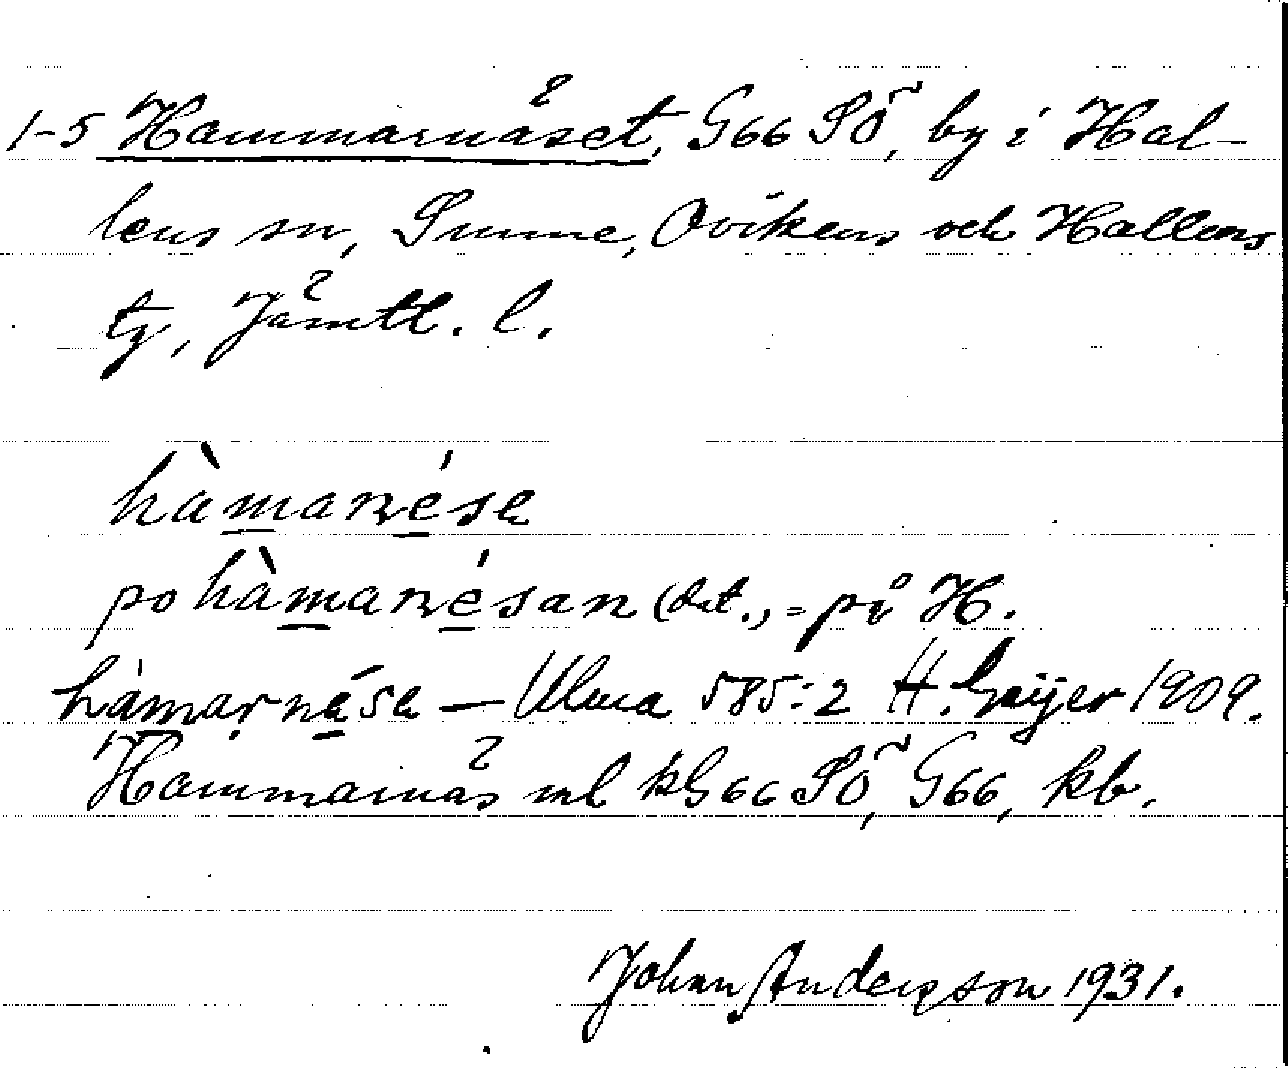 1-5 Hammarnäset, G66 SÖ, by i Hal-
lens sn, Sunne, Ovikens och Hallens
tg, Jämtl. l.
hàmanésa
po hàmanésan (dat.), = på H.
hàmarnésa — Ulma 585:2 H. Geijer 1909.
Hammarnäs ml kG66 SÖ, G66, kb.
Johan Anderson 1931.